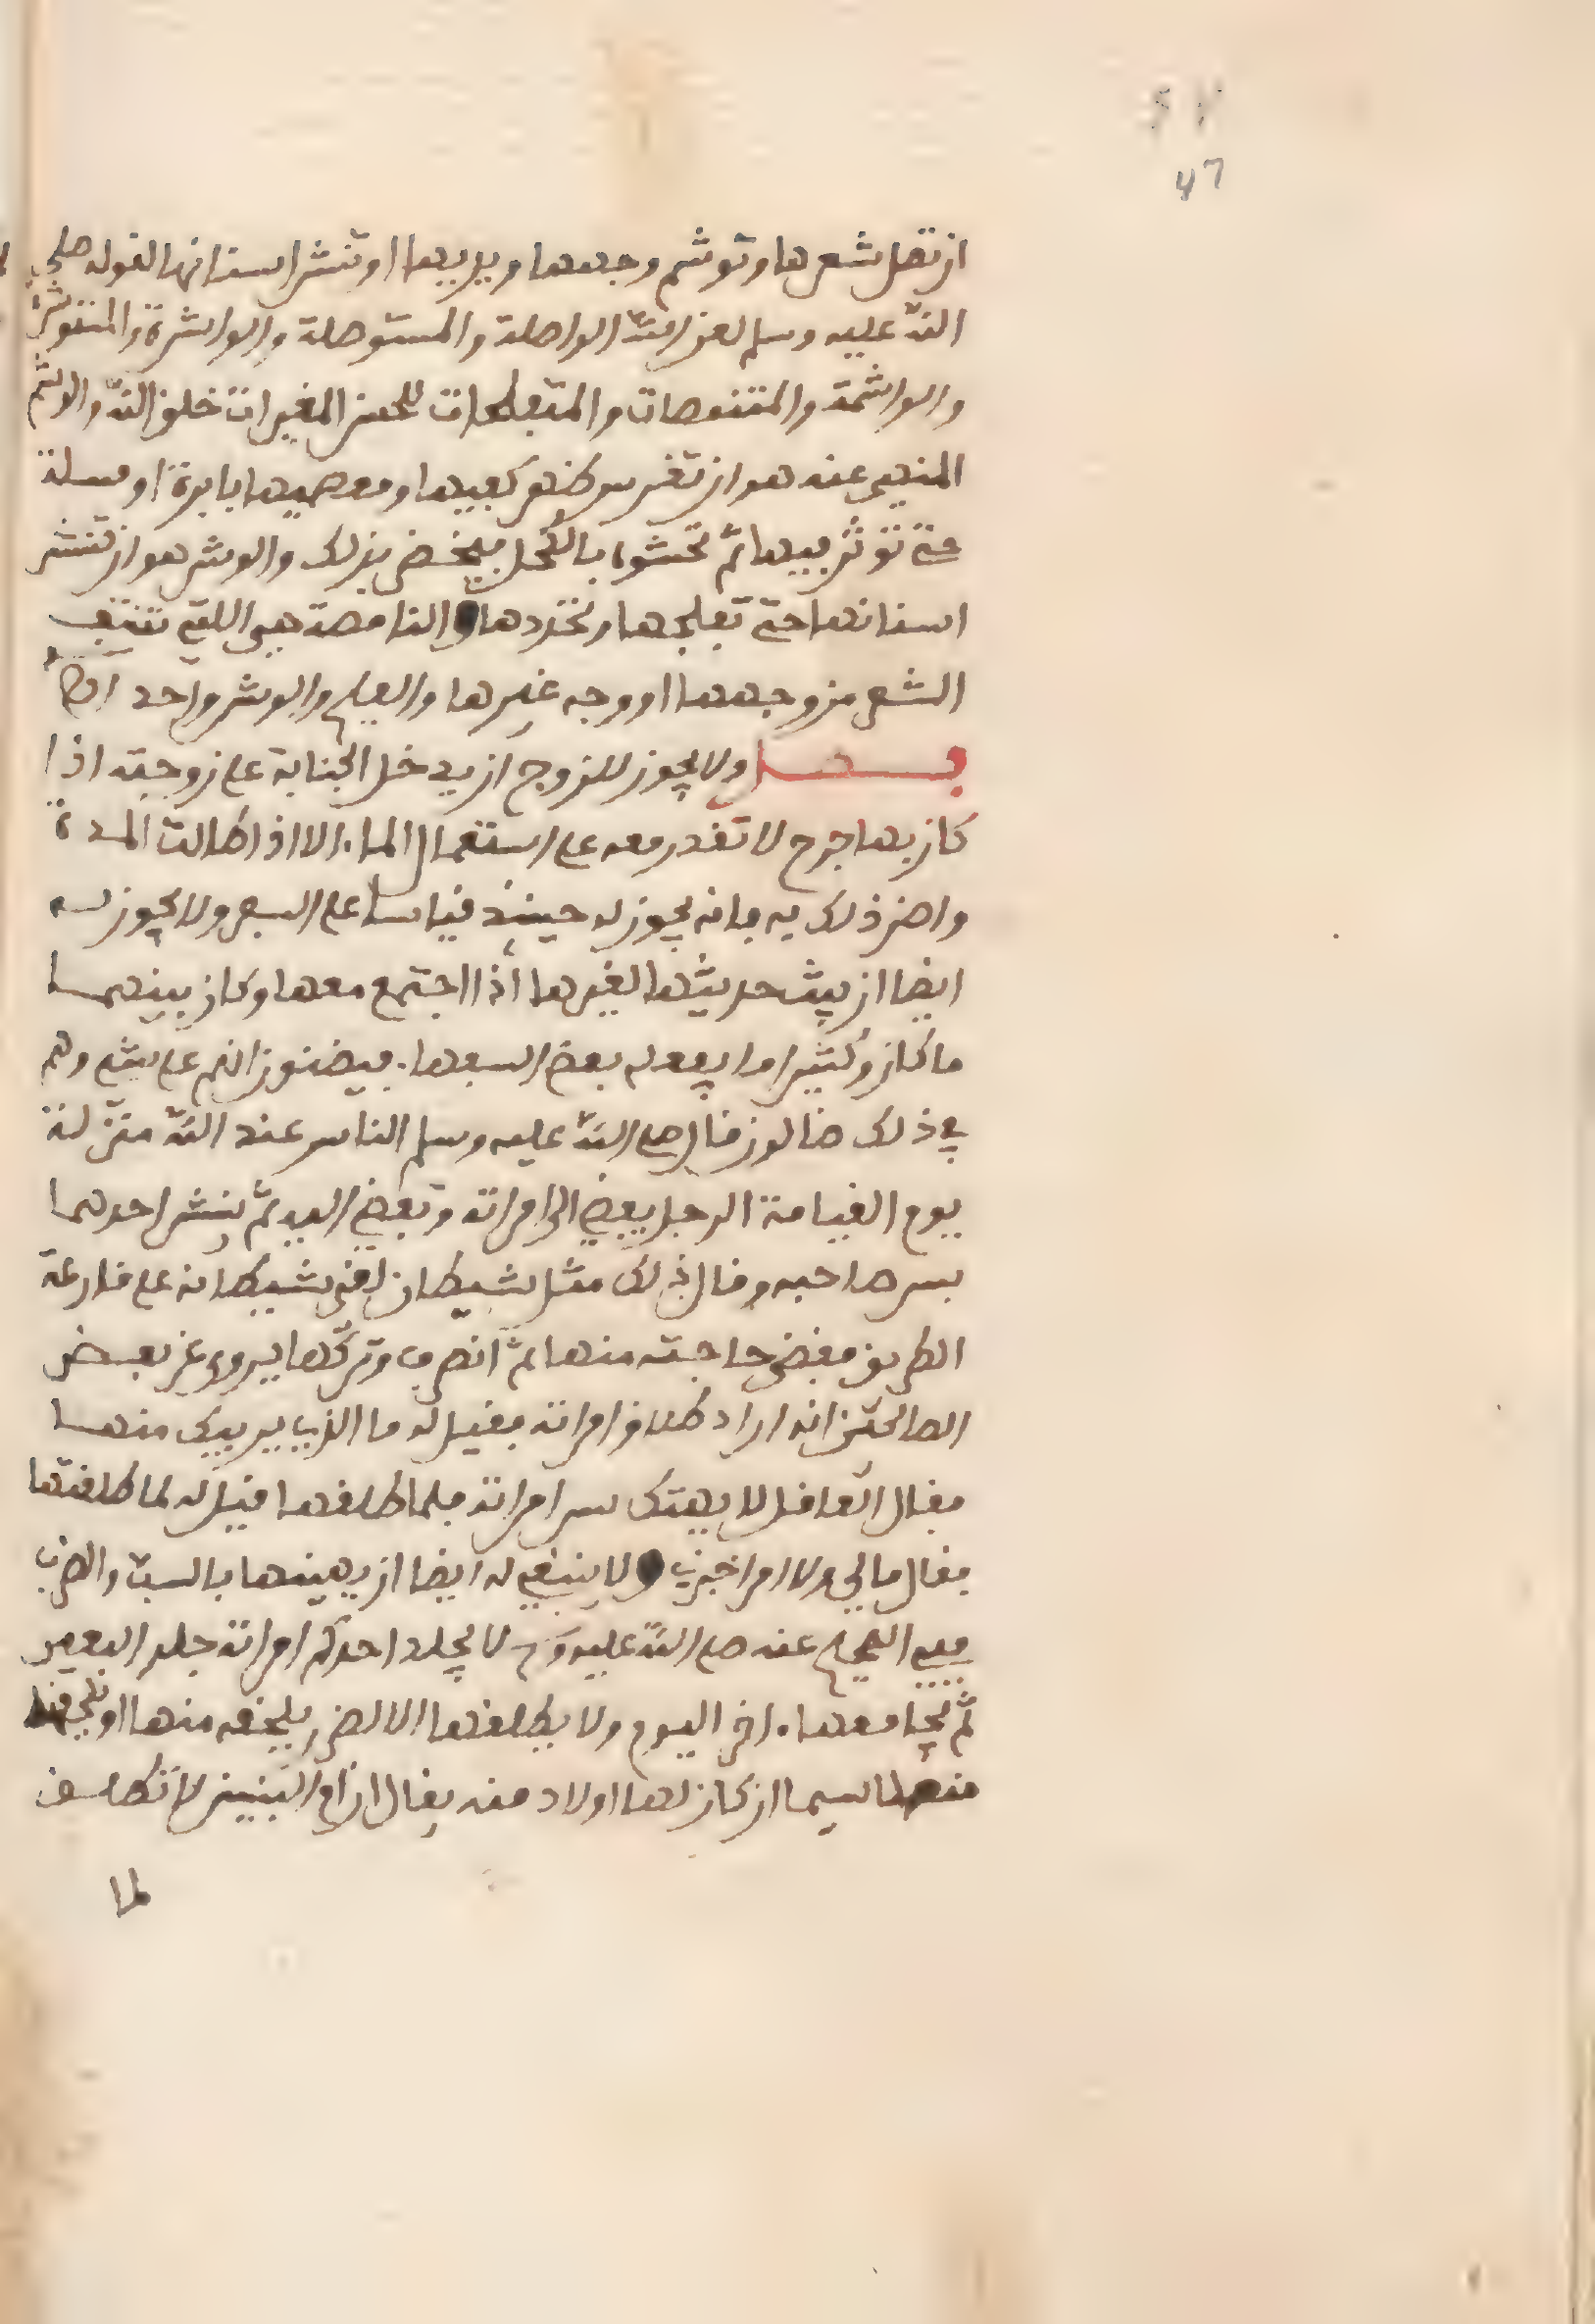 47
ان تصل شعرها وتوشم وجهها ويديها او تنشر اسنانها لقوله صلى
الله عليه وسلم لعن الله الواصلة والمستوصلة والواشرة والمستوشرة
والواشمة والمتنمصات والمتفلجات للحسن المغيرات خلق الله والوشم
المنهي عنه هو ان تغرس ظهر كفيها ومعصميها بابرة او مسلة
حتى تؤثر فيها ثم تحشوه بالكحل فيخضر بذلك والوشر هو ان تنشر
اسنانها حتى تفلجها وتحددها والنامصة هي اللتي تنتف
الشعر من وجهها او وجه غيرها والفلج والوشر واحد ايضا
فصل ولا يجوز للزوج ان يدخل الجنابة على زوجته اذا
كان بها جرح لا تقدر معه على استعمال الماء الا اذا طالت المدة
واضر ذلك به فانه يجوز له حينئذ قياسا على السفر ولا يجوز له
ايضا ان يبث حديثها لغيرها اذا اجتمع معها وكان بينهما
ما كان وكثيرا ما يفعله بعض السفها فيضنون انهم على شيء وهم
في ذلك ضالون قال صلى الله عليه وسلم الناس عند الله منزلة
يوم القيامة الرجل يفضي الى امراته وتفضي اليه ثم ينشر احدهما
سر صاحبه وقال ذلك مثل شيطان لقي شيطانه على قارعة
الطريق فقضى حاجته منها ثم انصرف وتركها يروى عن بعض
الصالحين انه اراد طلاق امراته فقيل له ما الذي يريبك منها
فقال العاقل لا يهتك سر امراته فلما طلقها قيل له لما طلقتها
فقال مالي ولامراة غيري ولا ينبغي له ايضا ان يهينها بالسب والضرب
ففي الصحيح عنه صلى الله عليه وسلم لا يجلد احدكم امراته جلد البعير
ثم يجامعها اخر اليوم ولا يطلقها الا لضرر يلحقه منها او يلحقها
منه لاسيما ان كان لها اولاد منه يقال ان ام البنين لا تطلق
لما